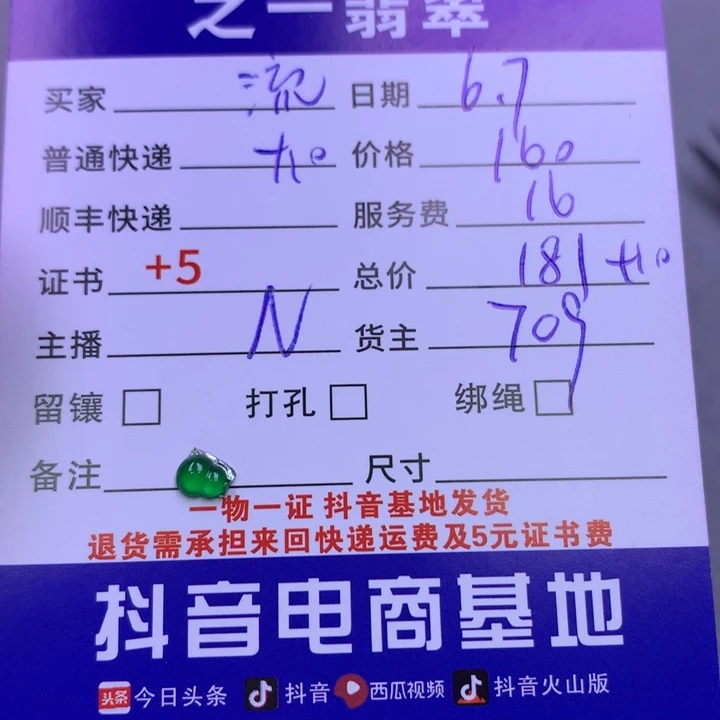 之一翡翠
买家 流 日期 6.7
普通快递 +10 价格 160
顺丰快递 服务费 16
证书 +5 总价 181+10
主播 N 货主 709
留镶 打孔 绑绳
备注 尺寸
一物一证 抖音基地发货
退货需承担来回快递运费及5元证书费
抖音电商基地
头条 今日头条 抖音 西瓜视频 抖音火山版